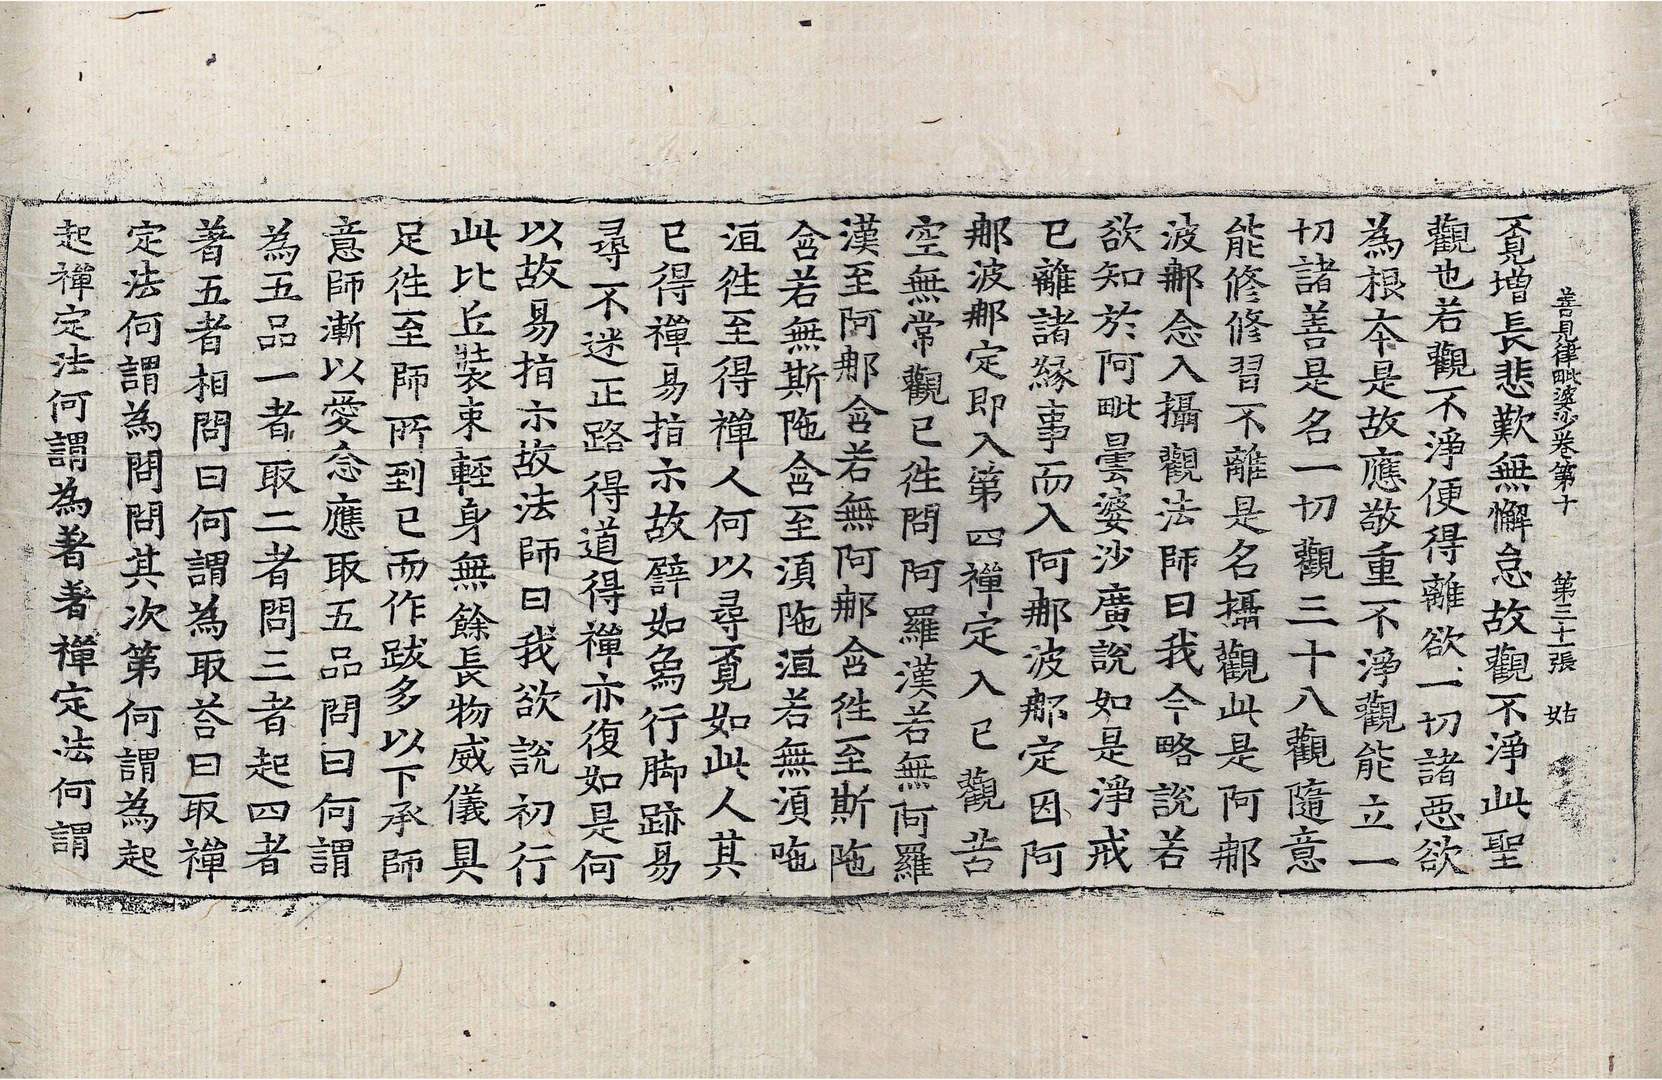 善見律毗婆沙卷第十　第三十一張　姑
覔增長悲歎無懈怠故觀不淨此聖
觀也若觀不淨便得離欲一切諸惡欲
為根夲是故應敬重不淨觀能立一
切諸善是名一切觀三十八觀隨意
能修修習不離是名攝觀此是阿那
波那念入攝觀法師曰我今略說若
欲知於阿毗曇婆沙廣說如是淨戒
已離諸緣事而入阿那波那定因阿
那波那定即入第四禪定入已觀苦
空無常觀已徃問阿羅漢若無阿羅
漢至阿那含若無阿那含徃至斯陁
含若無斯陁含至湏陁洹若無湏陁
洹徃至得禪人何以尋覔如此人其
已得禪易指示故譬如象行脚跡易
尋不迷正路得道得禪亦復如是何
以故易指示故法師曰我欲說初行
此比丘裝束輕身無餘長物威儀具
足徃至師所到已而作跋多以下承師
意師漸以愛念應取五品問曰何謂
為五品一者取二者問三者起四者
著五者相問曰何謂為取荅曰取禪
定法何謂為問問其次第何謂為起
起禪定法何謂為著著禪定法何謂